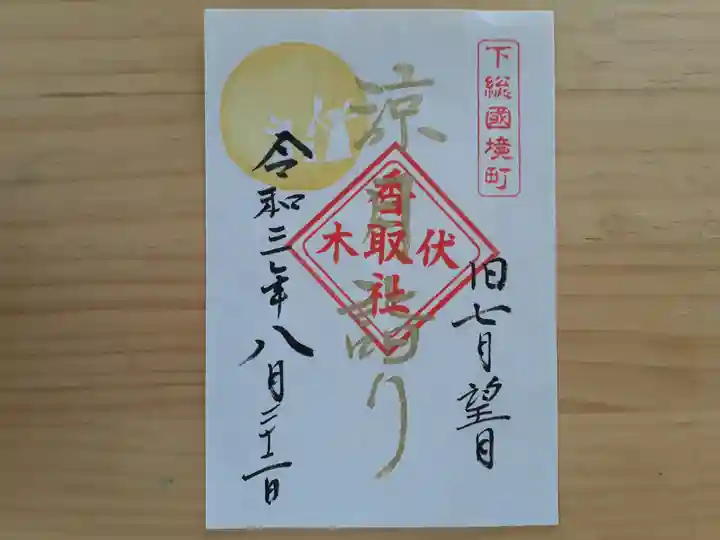 下総國境町
旧七月望日
涼月詣り
伏木
香取社
令和三年八月二十二日